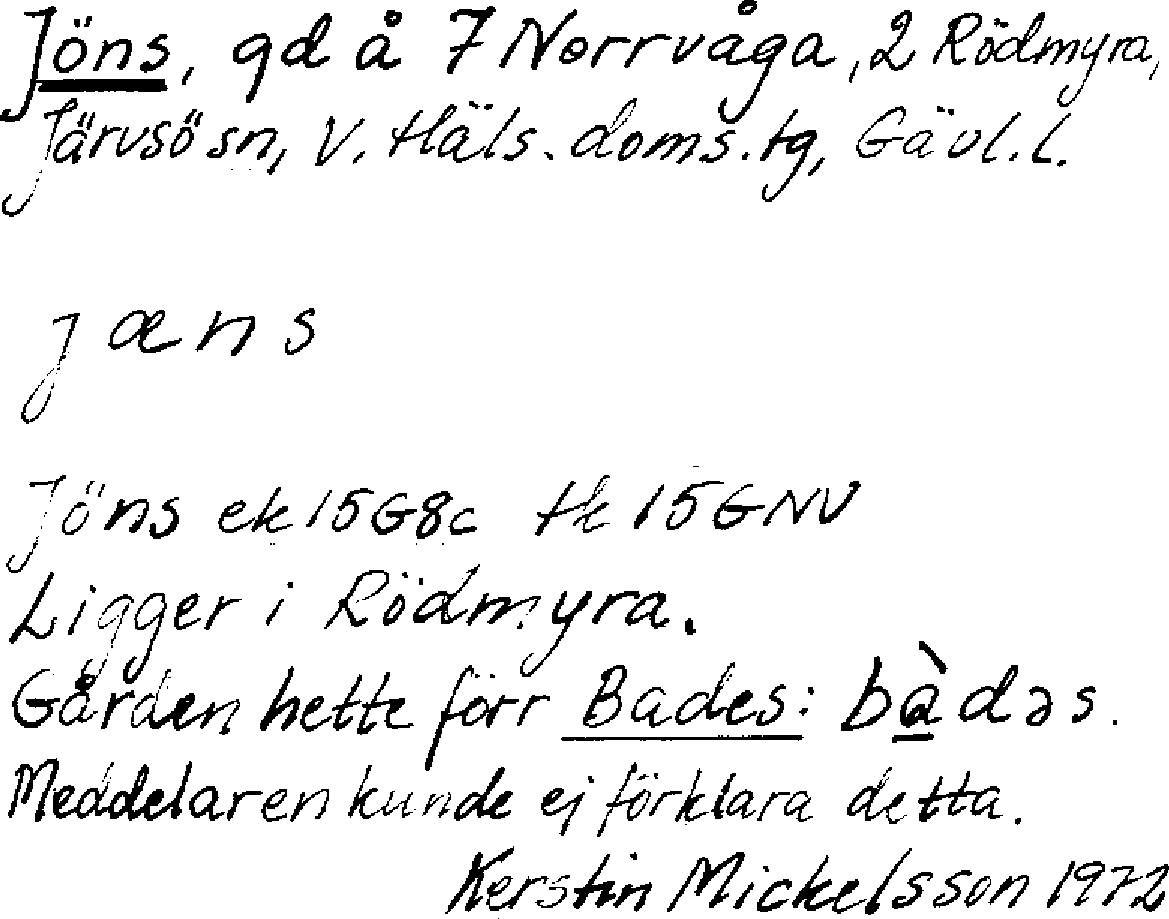 Jöns, gd å 7 Norrvåga, 2 Rödmyra,
Järvsö sn, V. Häls. doms. tg, Gävl. l.
jæns
Jöns ek 15G8c tk 15GNV
Ligger i Rödmyra.
Gården hette förr Bades: bàdəs.
Meddelaren kunde ej förklara detta.
Kerstin Mickelsson 1972